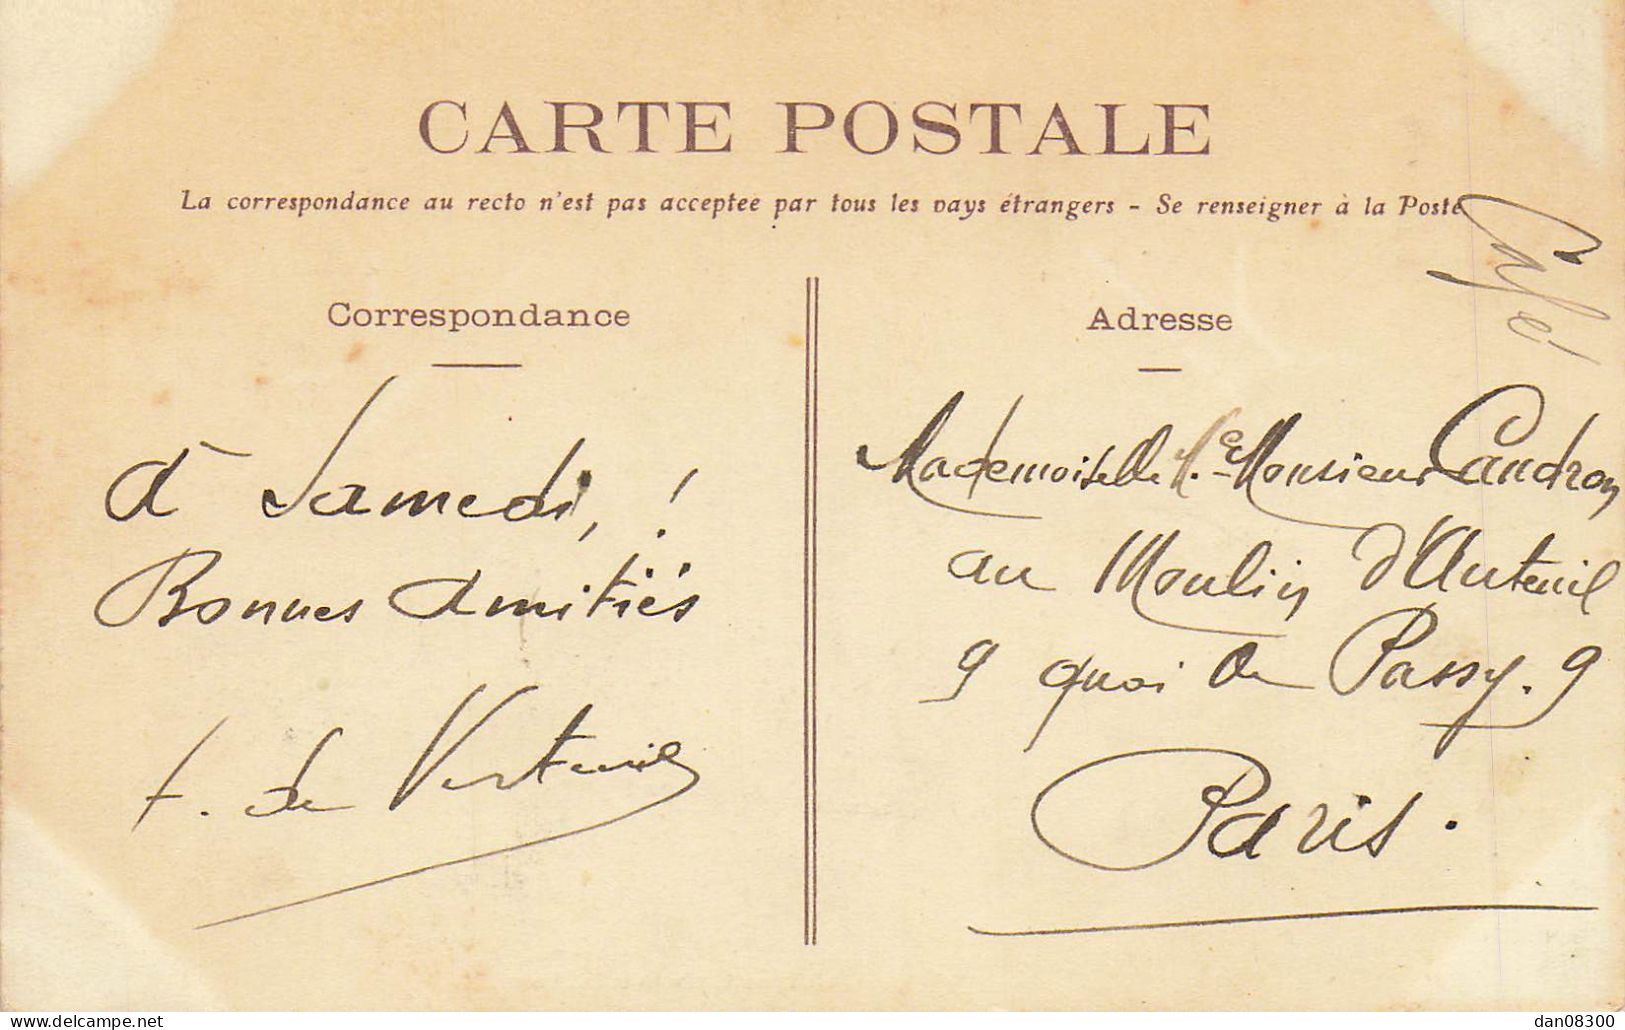 CARTE POSTALE
La correspondance au recto n'est pas acceptée par tous les pays étrangers - Se renseigner à la Poste
Correspondance
à Samedi, !
Bonnes Amitiés
f. de Verteuil
Adresse
Mademoiselle M. e Monsieur Caudron
au Moulin d'Auteuil
9 quai de Passy. 9
Paris.
www.delcampe.net
dan08300